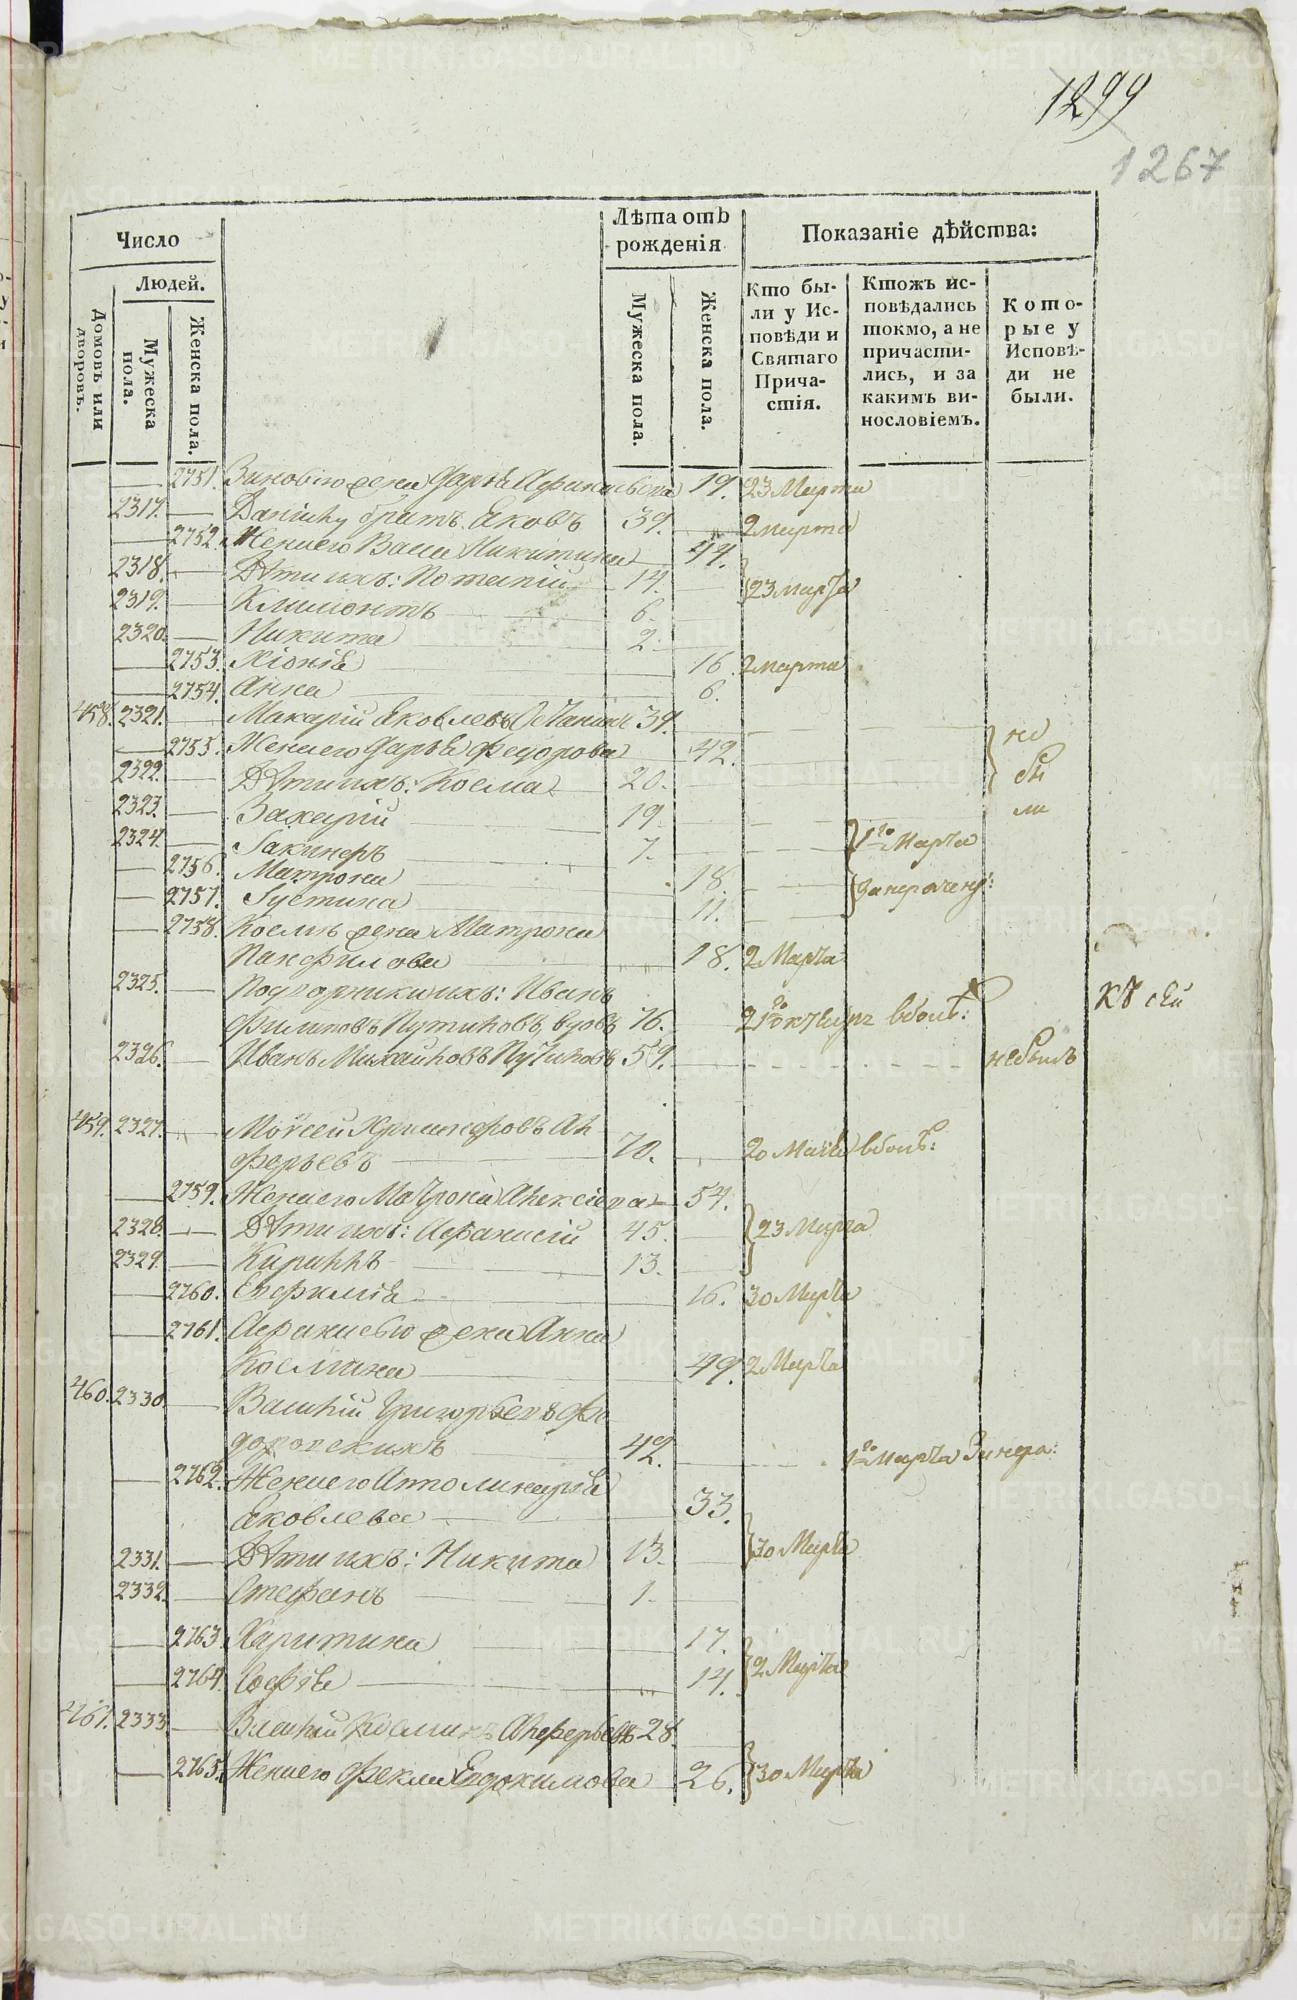 1299
1267
Число
Людей.
Домовъ или дворовъ.
Мужеска пола.
Женска пола.
Лѣта отъ рожденія
Мужеска пола.
Женска пола.
Показаніе дѣйства:
Кто были у Исповѣди и Святаго Причастія.
Ктожъ исповѣдались токмо, а не причастились, и за какимъ винословіемъ.
Которые у Исповѣди не были.
2751. Зиновію жена Дарья Афанасьева 19. 23 Марта
2317. Данилу братъ Яковъ 39. 2 марта
2752. Жена его Васса Никитина 44.
2318. Дѣти ихъ: Потапій 14. 23 марта
2319. Климонтъ 6.
2320. Никита 2.
2753. Хіонія 16. 2 марта
2754. Анна 6.
458. 2321. Макарій Яковлевъ 39. не
2755. Жена его Дарья Федорова 42. бы
2322. Дѣти ихъ: Косма 20. ли
2323. Захарій 19.
2324. 7. 1го Марта
2756. Матрона 18.
2757. Іустина 11.
2758. Космы жена Матрона
Панфилова 18. 2 Марта
2325. Подворники ихъ: Иванъ
Филиповъ Путиловъ вдовъ 76.
2326. Иванъ Михайловъ Путиловъ 59. не былъ
459. 2327. Моисей Ал
ферьевъ 70. 20
2759. Жена его Матрона Алексіева 54.
2328. Дѣти ихъ: Афанасій 45. 23 Марта
2329. Кириллъ 13.
2760. Евфимія 16. 30 Марта
2761. Афанасью жена Анна
Космина 49. 2 Марта
460. 2330. Василій Григорьевъ Фе
доровскихъ 42. 1го Марта
2762. Жена его Аполинарія
Яковлева 33.
2331. Дѣти ихъ: Никита 13. 30 Марта
2332. Стефанъ 1.
2763. Харитина 17.
2764. Софья 14. 2 Марта
461. 2333. Василій Косминъ Алферьевъ 28.
2765. Жена его Фекла Евдокимова 26. 30 Марта
METRIKI.GASO-URAL.RU